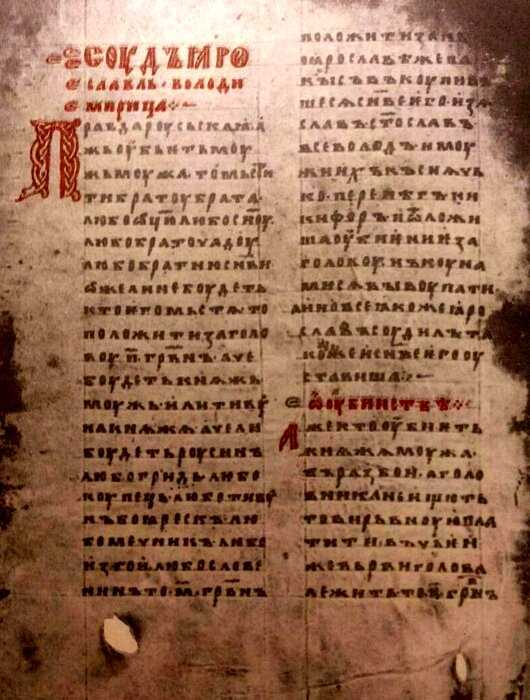 СОУДЪ ЯРО
СЛАВЛЬ · ВОЛОДИ
МИРИЦА
ПРАВДА РОУСЬСКАЯ · А
ЖЬ ОУБЬЕТЬ МОУ
ЖЬ МОУЖА · ТО МЬСТИ
ТИ БРАТОУ БРАТА
ЛЮБО ЛЮБО СНОУ
ЛЮБО БРАТОУЧАДОУ
ЛЮБО БРАТНЮ СНВИ
ѠЖЕ ЛИ НЕ БОУДЕТЬ
КТО ЕГО МЬСТЯ ТО
ПОЛОЖИТИ ЗА ГОЛО
ВОУ П · ГРВНЪ · АЧЕ
БОУДЕТЬ КНЯЖЬ
МОУЖЬ · ИЛИ ТИВУ
НА КНЯЖА · АЧЕ ЛИ
БОУДЕТЬ РОУСИНЪ
ЛЮБО ГРИДЬ · ЛЮБО
КОУПЕЦЬ · ЛЮБО ТИВУ
НЪ БОЯРЕСКЪ · ЛЮ
БО МЕЧНИК · ЛЮБО
ИЗГОИ · ЛЮБО СЛОВЕ
НИНЪ ТО · М · ГРВНЪ
ПОЛОЖИТИ ЗАНЬ
ПО ЯРОСЛАВѢ ЖЕ ПА
КЫ СЪВЪКОУПИВЪ
ШЕСЯ СНВЕ ЕГО · ИЗЯ
СЛАВЪ · СТОСЛАВЪ
ВСЕВОЛОДЪ И МОУ
ЖИ ИХЪ
ПЕРЕНѢГЪ · НИ
КИФОРЪ И ѾЛОЖИ
ША ОУБИЕНИЕ ЗА
ГОЛОВОУ НЪ КОУНА
МИ СЯ ВЫКОУПАТИ
А ИНО ВСЕ ЯКОЖЕ ЯРО
СЛАВЪ СОУДИЛЪ ТА
КОЖЕ И СНВЕ ЕГО ОУ
СТАВИША
Ѡ ОУБИИСТВѢ
АЖЕ КТО ОУБИЕТЬ
КНЯЖА МОУЖА ·
ВЪ РАЗБОИ · А ГОЛО
ВНИКА НЕ ИЩЮТЬ
ТО ВИРЬВНОУЮ ПЛА
ТИТИ · ВЪ ЧЬЕИ
ЖЕ ВЬРВИ ГОЛОВА
ЛЕЖИТЬ ТО · П · ГРВНЪ